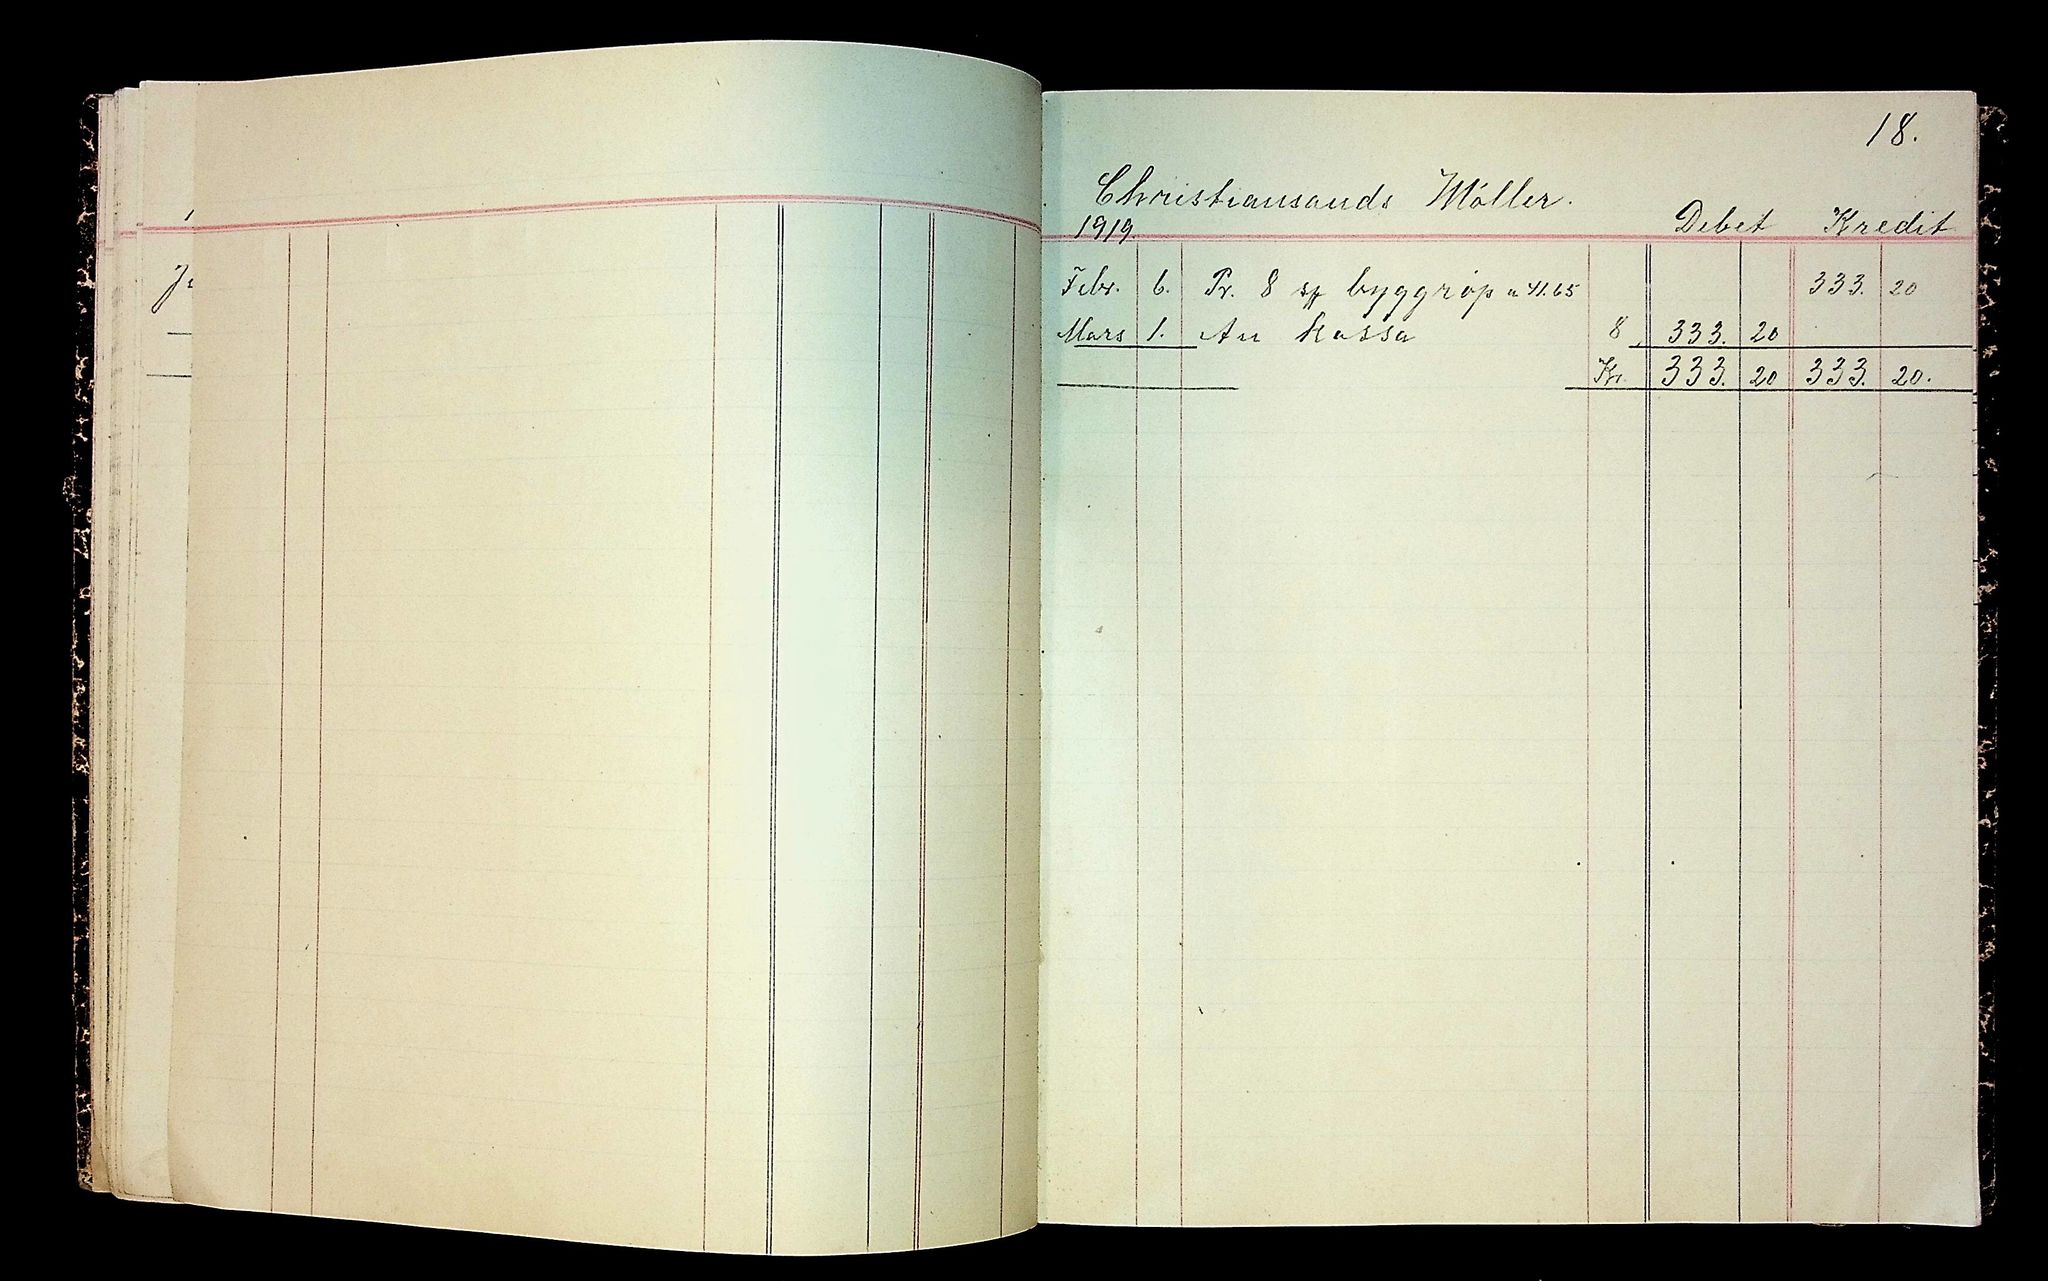 18.
Christiansands Möller.
1919. Debet Kredit
Febr. 6. Pr. 8 sk byggröp a 41.65 333. 20
Mars 1. An Kassa 8 333. 20
Kr. 333. 20 333. 20.